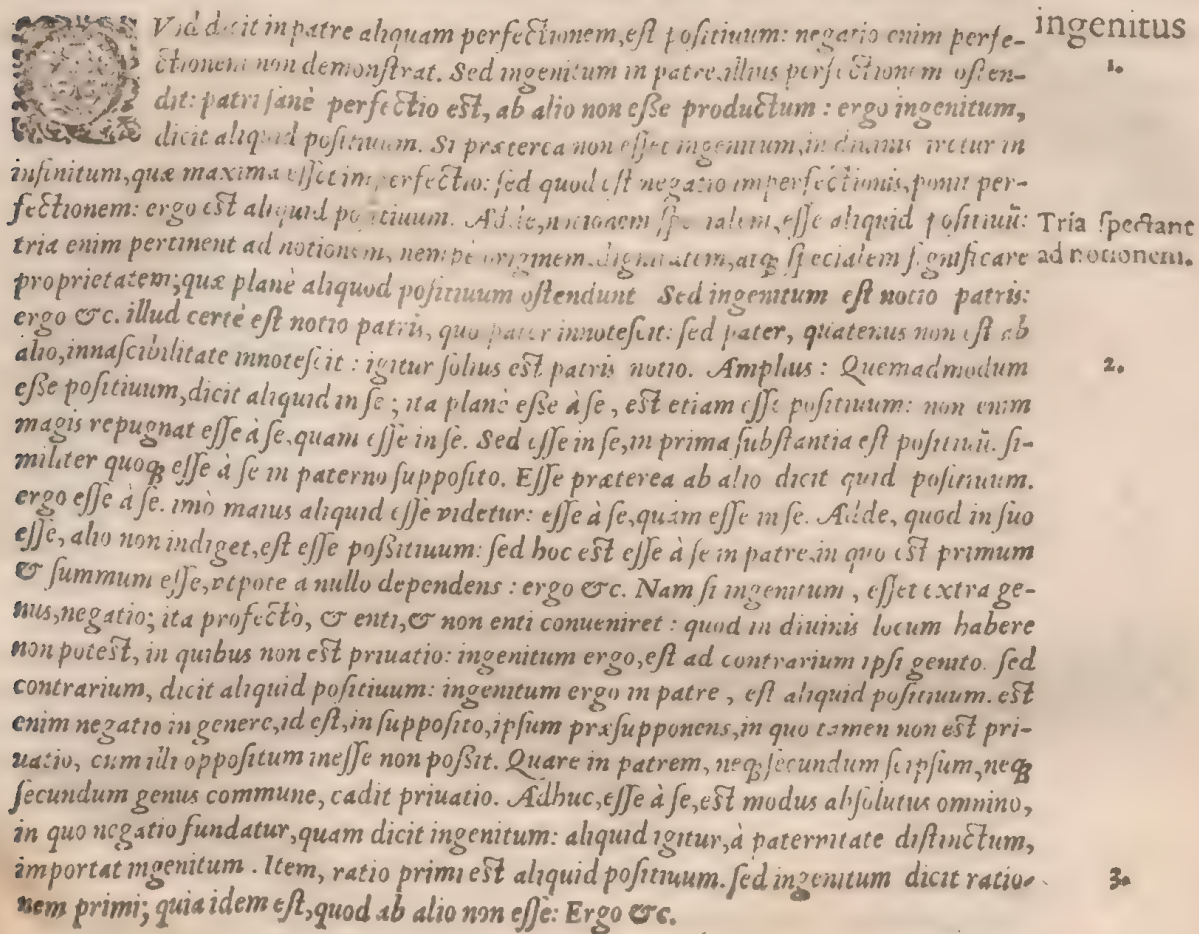 QVid dicit in patre aliquam perfectionem, est positiuum: negatio enim perfe-
ctionem non demonstrat. Sed ingenitum in patre, illius perfectionem osten-
dit: patri sanè perfectio est, ab alio non esse productum : ergo ingenitum,
dicit aliquid positiuum. Si præterea non esset ingenitum, in diuinis iretur in
infinitum, quæ maxima esset imperfectio: sed quod est negatio imperfectionis, ponit per-
fectionem: ergo est aliquid positiuum. Adde, notionem specialem, esse aliquid positiuū:
tria enim pertinent ad notionem, nempè originem, dignitatem, atq; specialem significare
proprietatem; quæ planè aliquod positiuum ostendunt Sed ingenitum est notio patris:
ergo &c. illud certè est notio patris, quo pater innotescit: sed pater, quatenus non est ab
alio, innascibilitate innotescit : igitur solius est patris notio. Amplius : Quemadmodum
esse positiuum, dicit aliquid in se ; ita planè esse à se , est etiam esse positiuum: non enim
magis repugnat esse à se, quam esse in se. Sed esse in se, in prima substantia est positiuū. si-
militer quoq; esse à se in paterno supposito. Esse præterea ab alio dicit quid positiuum.
ergo esse à se. imò maius aliquid esse videtur: esse à se, quàm esse in se. Adde, quod in suo
esse, alio non indiget, est esse possitiuum: sed hoc est esse à se in patre, in quo est primum
& summum esse, vtpote a nullo dependens : ergo &c. Nam si ingenitum , esset extra ge-
nus, negatio; ita profectò, & enti, & non enti conueniret : quod in diuinis locum habere
non potest, in quibus non est priuatio: ingenitum ergo, est ad contrarium ipsi genito. sed
contrarium, dicit aliquid positiuum: ingenitum ergo in patre , est aliquid positiuum. est
enim negatio in genere, id est, in supposito, ipsum præsupponens, in quo tamen non est pri-
uatio, cum illi oppositum inesse non possit. Quare in patrem, neq; secundum seipsum, neq;
secundum genus commune, cadit priuatio. Adhuc, esse à se, est modus absolutus omnino,
in quo negatio fundatur, quam dicit ingenitum: aliquid igitur, à paternitate distinctum,
importat ingenitum . Item, ratio primi est aliquid positiuum. sed ingenitum dicit ratio-
nem primi; quia idem est, quod ab alio non esse: Ergo &c.
ingenitus
1.
Tria spectant
ad notionem.
2.
3.